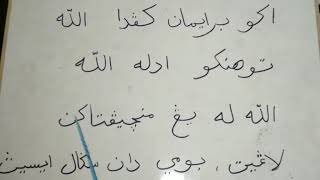 اکو برايمان کڤدا الله
توهنکو ادله الله
الله له يڠ منچيڤتاکن
لاڠيت، بومي دان سݢال ايسيڽ